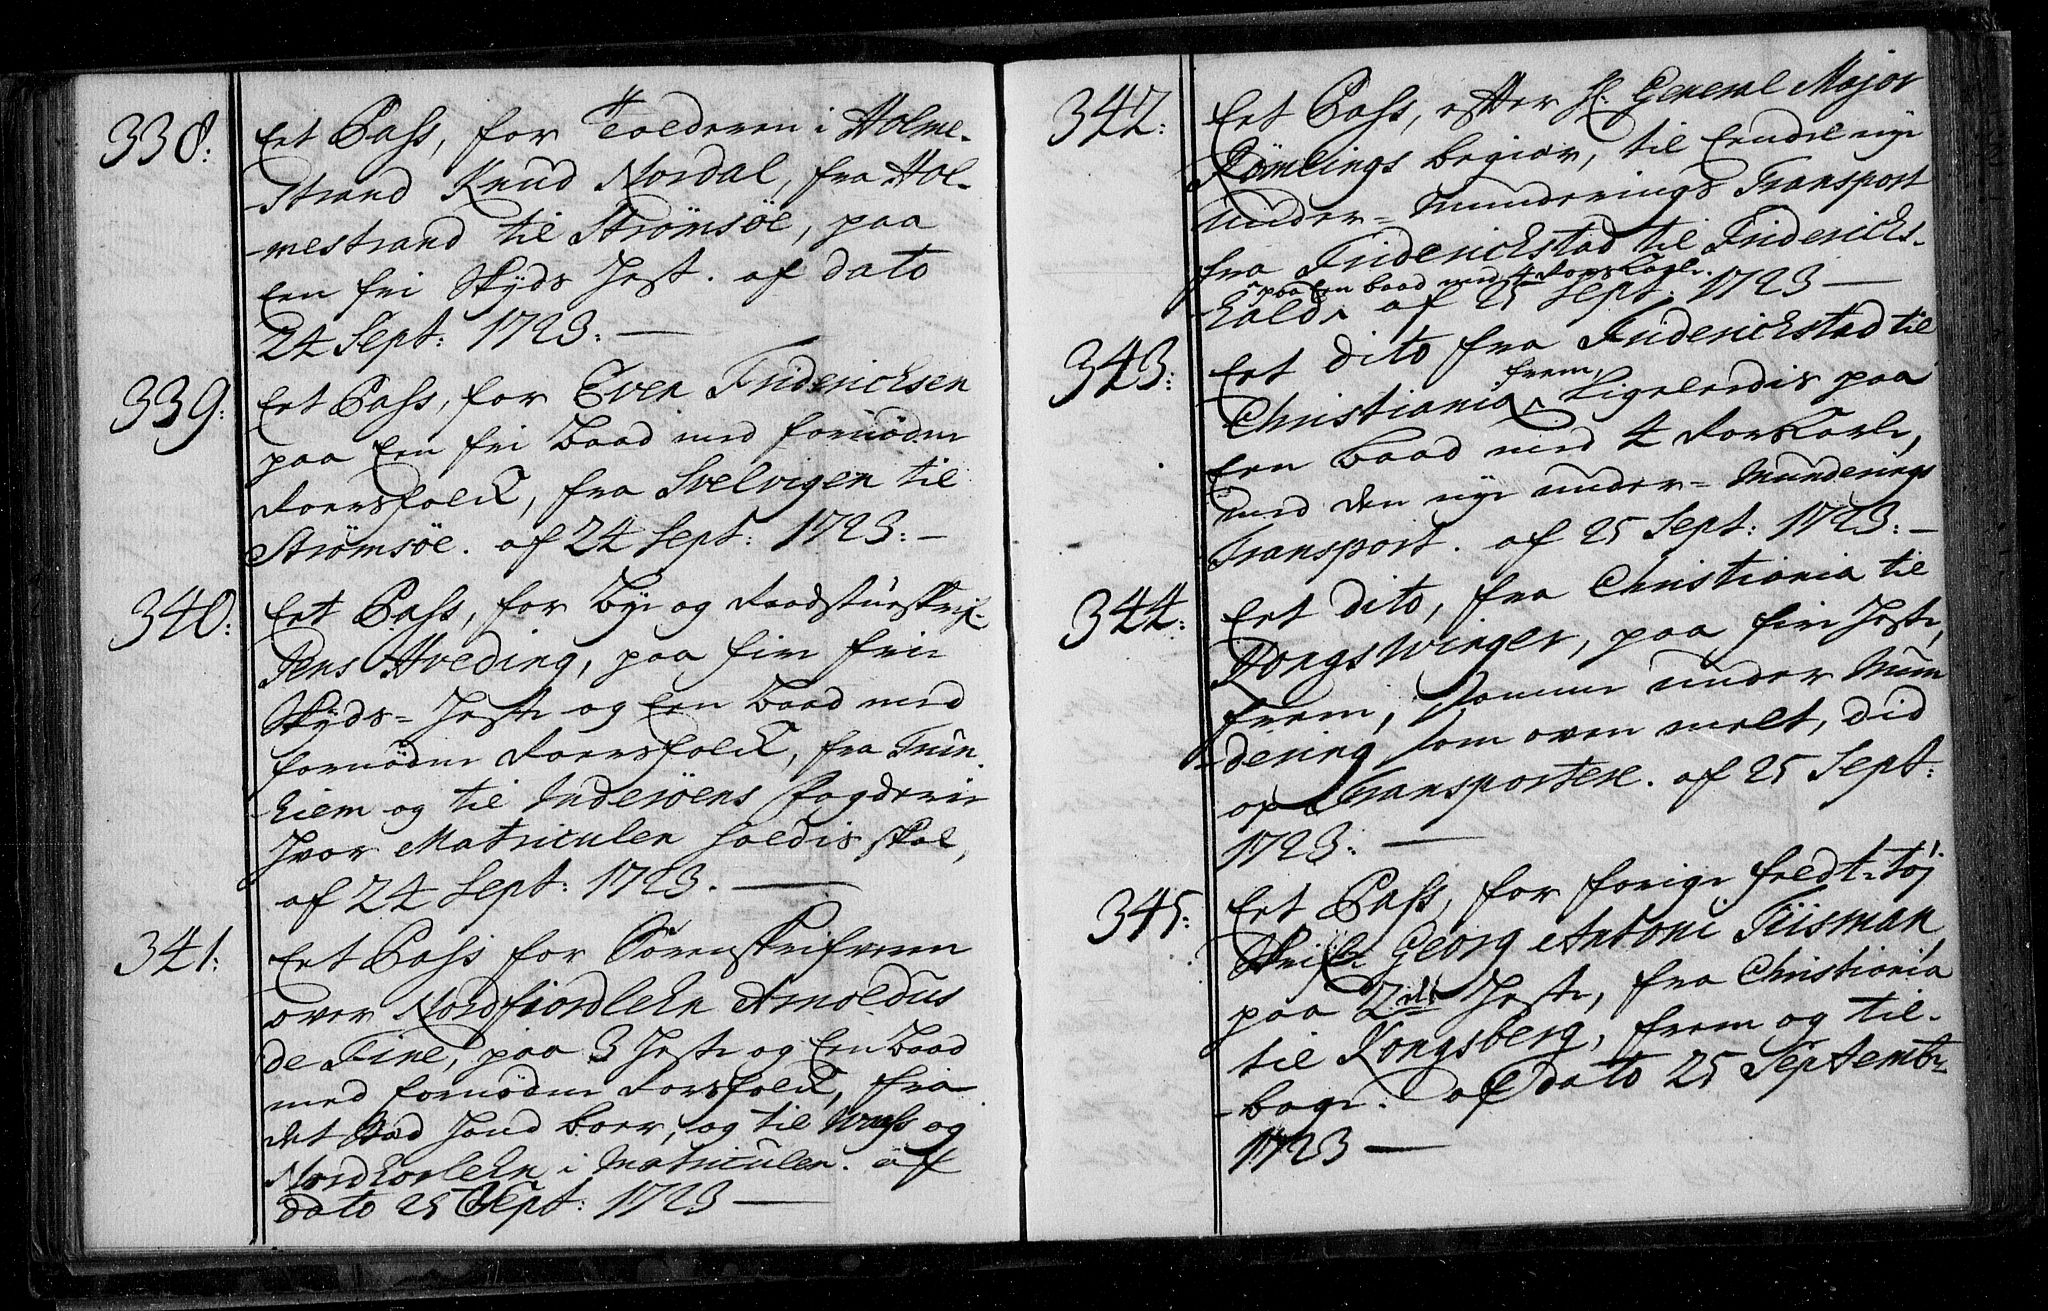 338: Eet Pass, for Tolderen i Holme-
strand Knud Nordal, fra Hol-
mestrand til Strømsöe, paa
Een fri Skyds Hest. af dato
24 Sept: 1723: —
339: Eet Pass, for Even Friderichsen
paa Een fri Baad med fornøden
Roersfolck, fra Svelvigen til
Strømsöe. af 24 Sept: 1723: —
340: Eet Pass, for Bye og Raadstueskrif:
Jens Hveding, paa fire frie
Skyds-Heste og Een Baad med
fornøden Roersfolck, fra Trun-
hiem og til Inderöens fogderie
hvor Matriculen holdis skal,
af 24 Sept: 1723. —
341: Eet Pass for Sorenskrifveren
over Nordfiordlehn Arnoldus
de Fine, paa 3 Heste og Een Baad
med fornøden Roersfolck, fra
det stæd hand boer, og til Waass og
Nordhorlehn i Matriculen. af
dato 25 Sept: 1723 —
342: Eet Pass, efter H. General Major
Römlings begiær, til Eendel nye
Under-Munderings Transport
fra Friderichstad til Friderichs-
paa Een baad med 4 Roerskarle.
hald. af 25 Sept: 1723 —
343: Eet dito fra Friderichstad til
frem,
Christiania, Ligeledis paa
Een Baad med 4 Roerskarle,
med den nye under-Munderings
Transport. af 25 Sept: 1723: —
344: Eet dito, fra Christiania til
Kongswinger, paa fire Heste,
frem, samme under Mun
dering som oven melt, did
op Transportere. af 25 Sept:
1723: —
345: Eet Pass, for forige feldt-töj
Skrifr Georg Antoni Tiisman,
paa 2de Heste, fra Christiania
til Kongsberg, frem og til-
bage. af dato 25 Septembr
1723 —